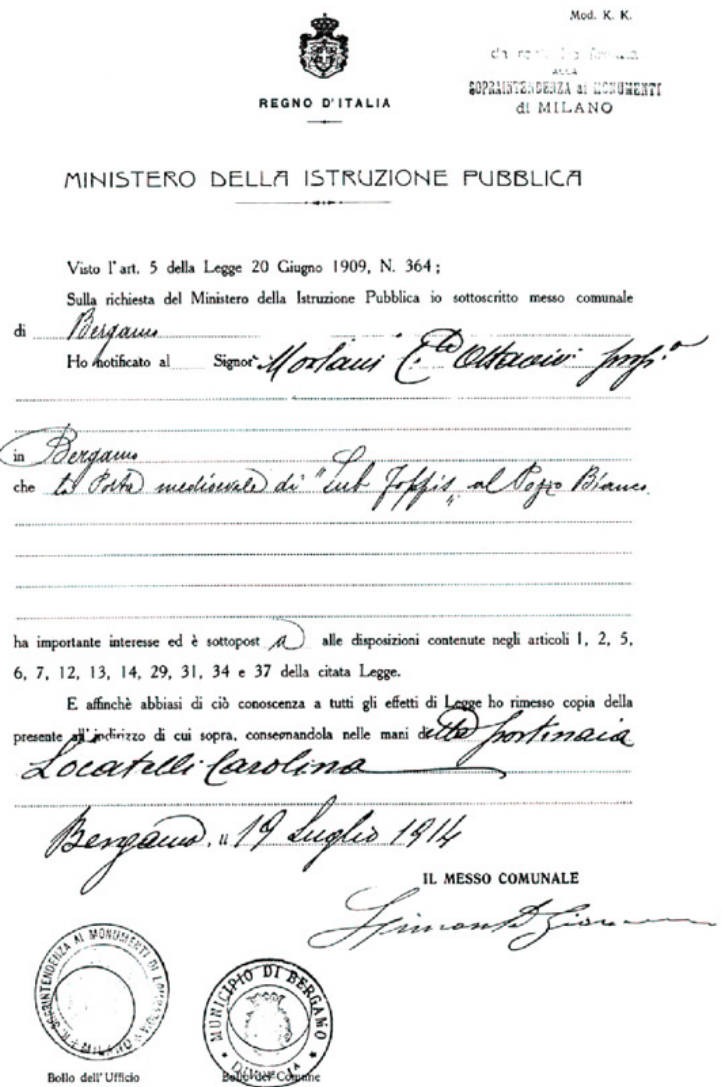 Mod. K. K.
REGNO D'ITALIA
ALLA
SOPRAINTENDENZA ai MONUMENTI
di MILANO
MINISTERO DELLA ISTRUZIONE PUBBLICA
Visto l'art. 5 della Legge 20 Giugno 1909, N. 364;
Sulla richiesta del Ministero della Istruzione Pubblica io sottoscritto messo comunale
di Bergamo
Ho notificato al Signor Morlani C.te Ottavio
in Bergamo
che la Porta medioevale di "Sub Foppis" al Pozzo Bianco
ha importante interesse ed è sottopost a alle disposizioni contenute negli articoli 1, 2, 5,
6, 7, 12, 13, 14, 29, 31, 34 e 37 della citata Legge.
E affinchè abbiasi di ciò conoscenza a tutti gli effetti di Legge ho rimesso copia della
presente all'indirizzo di cui sopra, consegnandola nelle mani della portinaia
Locatelli Carolina
Bergamo, li 19 Luglio 1914
IL MESSO COMUNALE
R. SOPRINTENDENZA AI MONUMENTI DI LOMBARDIA
MILANO
MUNICIPIO DI BERGAMO
Bollo dell'Ufficio
Bollo del Comune